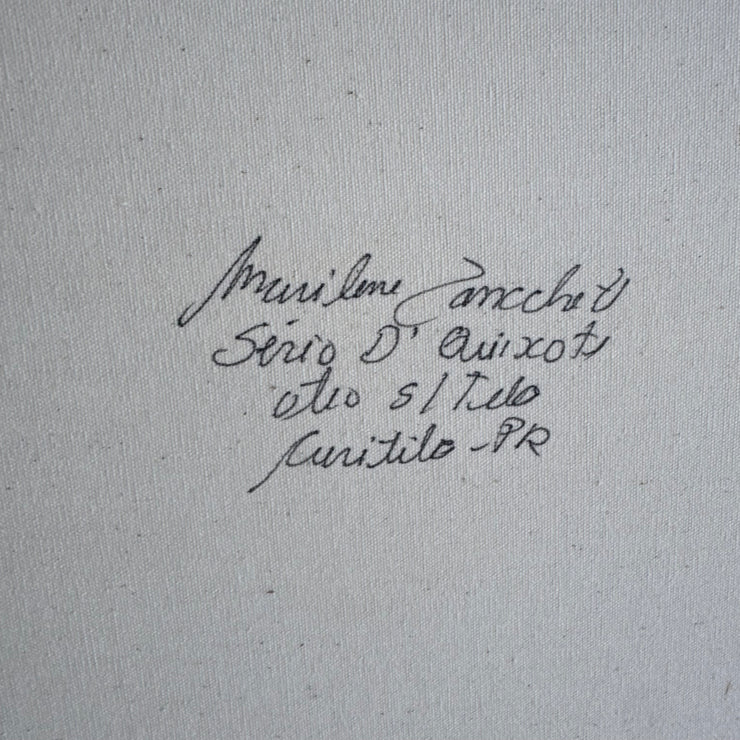 Marilene Zancchet
Série D' Quixote
oleo s/ Tela
Curitiba - PR